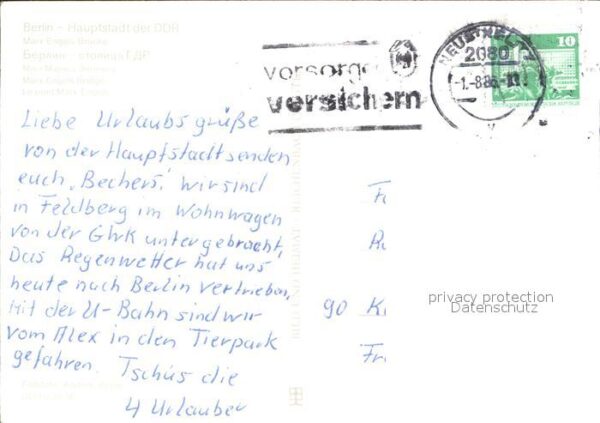 Berlin – Hauptstadt der DDR
Marx-Engels-Brücke
Берлин – столица ГДР
vorsorge
versichern
NEUSTRELITZ
2080
-1.-8.86-
10
Liebe Urlaubsgrüße
von der Hauptstadt senden
euch „Bechers“. Wir sind
in Feldberg im Wohnwagen
von der GHK untergebracht,
Das Regenwetter hat uns
heute nach Berlin vertrieben,
Mit der U-Bahn sind wir
vom Alex in den Tierpark
gefahren. Tschüs die
4 Urlauber
90
privacy protection
Datenschutz